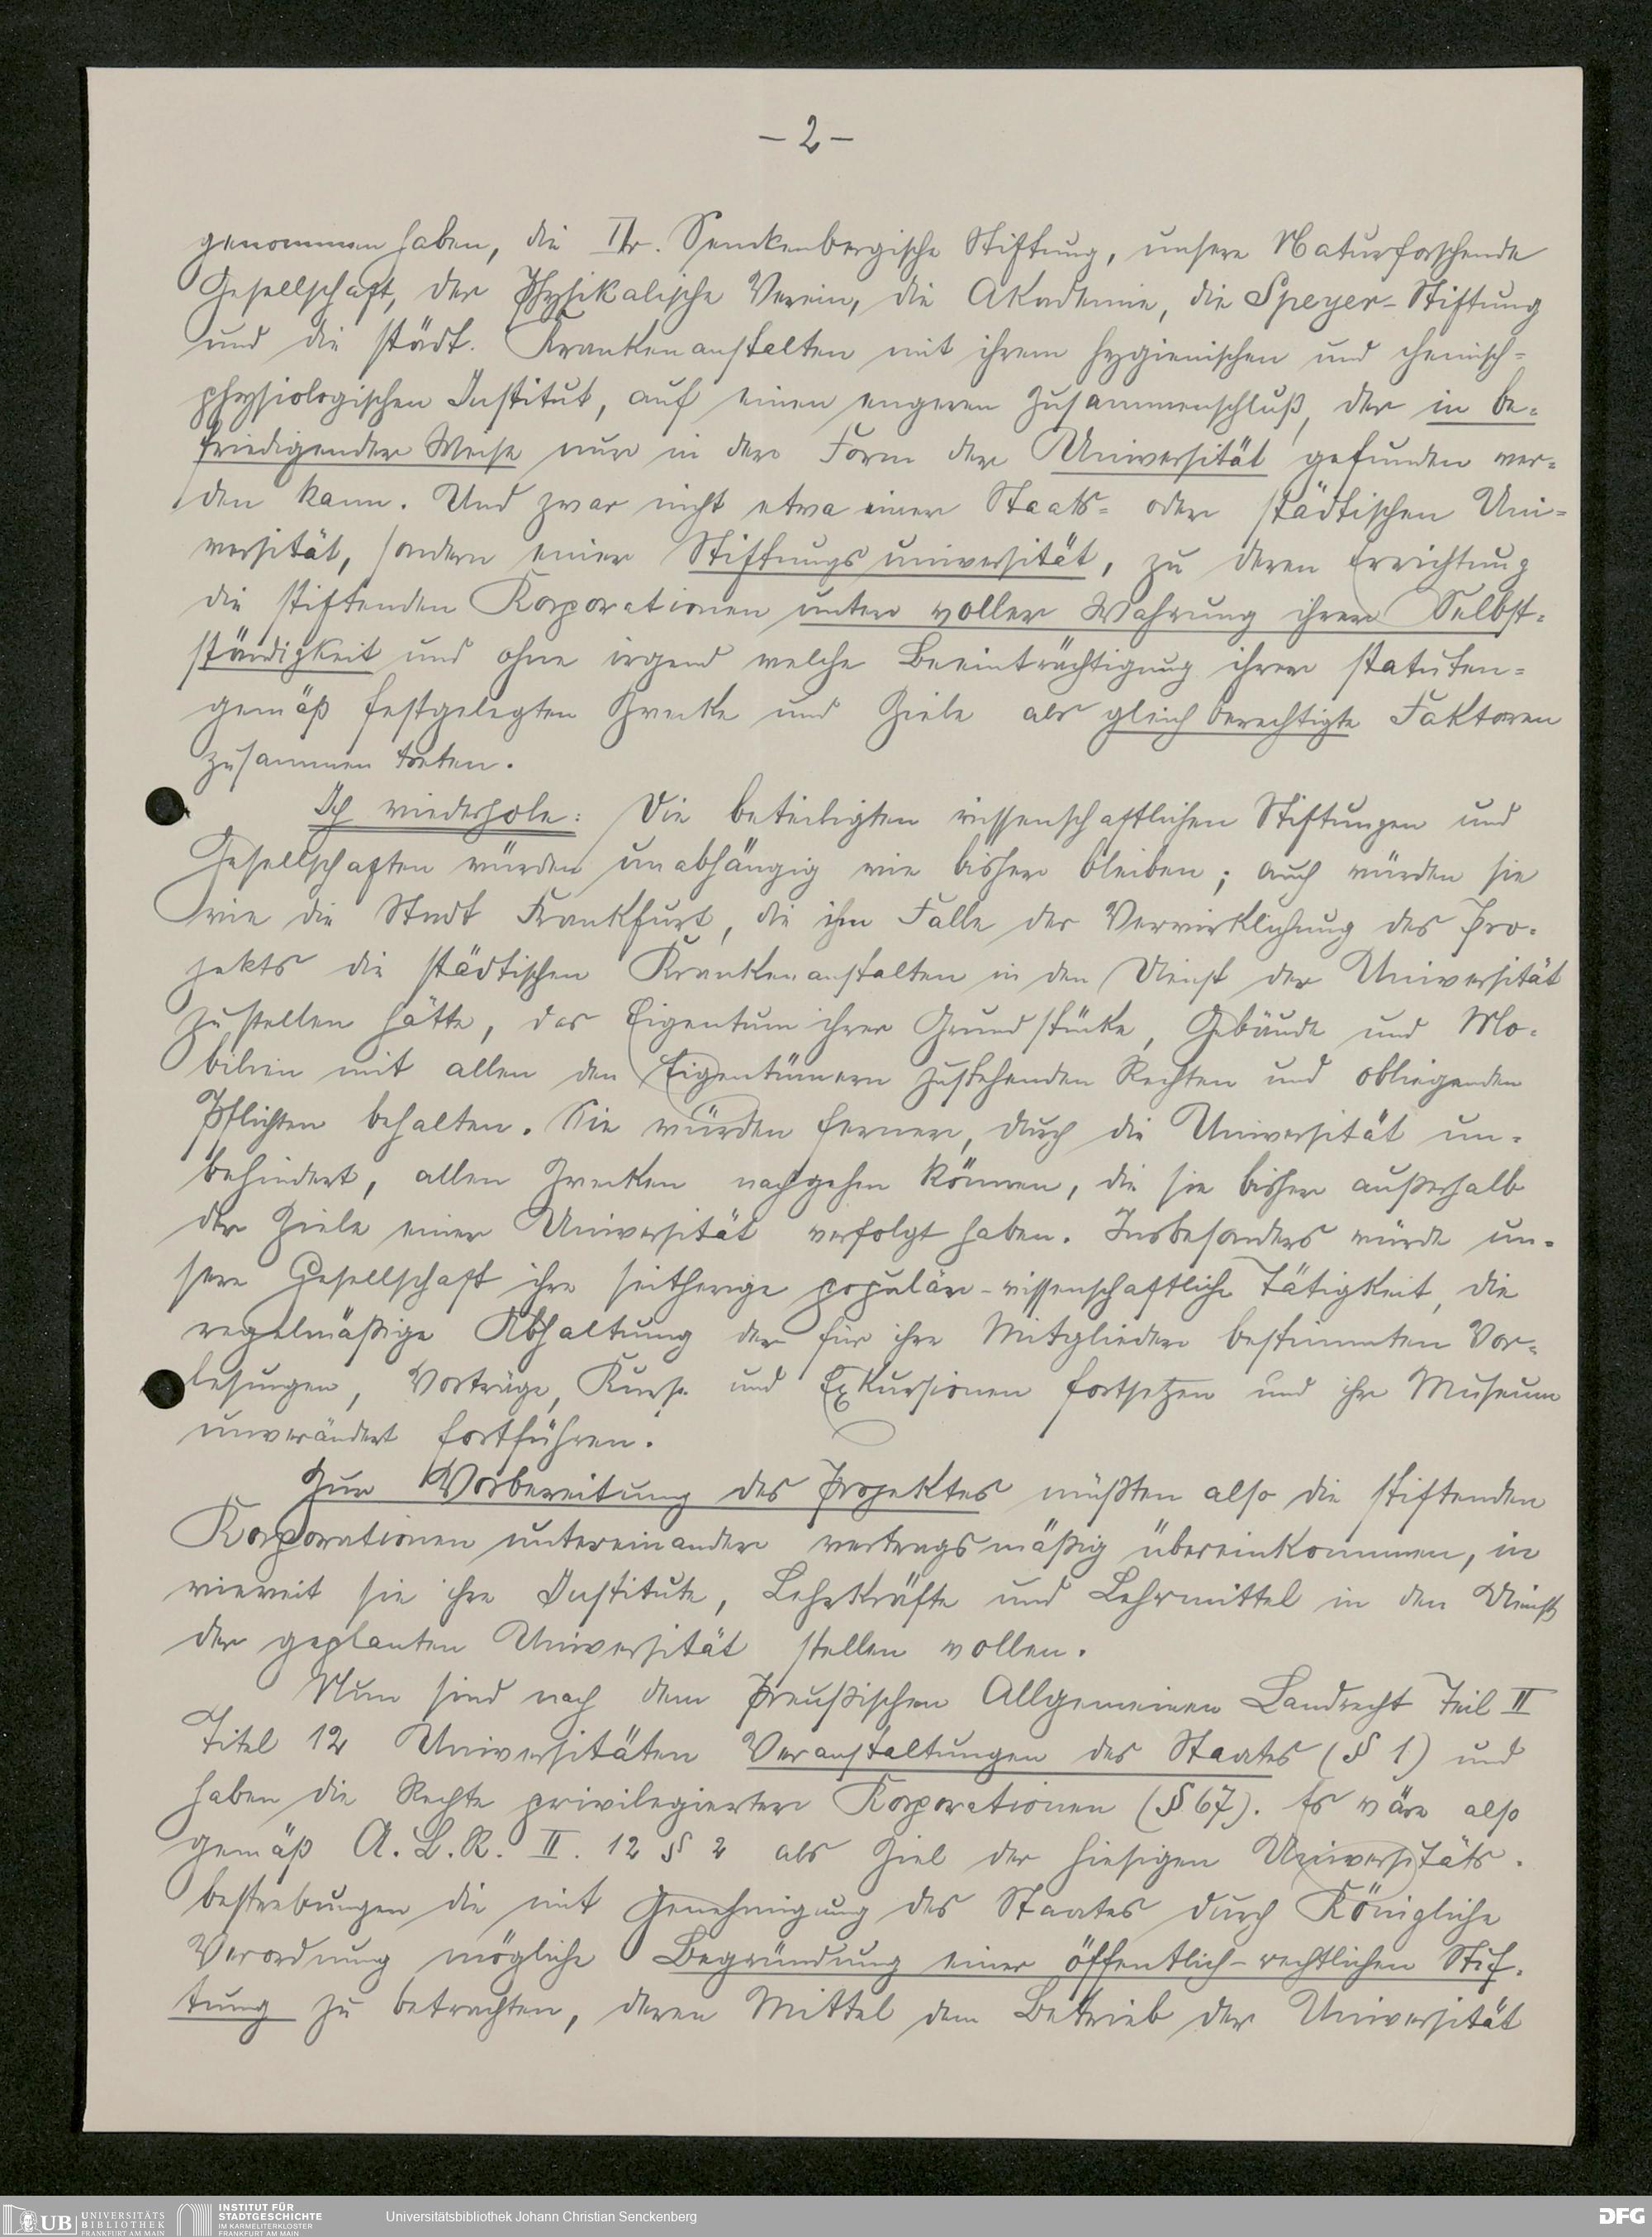 – 2 –
genommen haben, die Dr. Senckenbergische Stiftung, unsere Naturforschende
Gesellschaft, der Physikalische Verein, die Akademie, die Speyer-Stiftung
und die städt. Krankenanstalten mit ihrem hygienischen und chemisch-
physiologischen Institut, auf einen engeren Zusammenschluß, der in be-
friedigender Weise nur in der Form der Universität gefunden wer-
den kann. Und zwar nicht etwa einer Staats- oder städtischen Uni-
versität, sondern einer Stiftungsuniversität, zu deren Errichtung
die stiftenden Korporationen unter voller Wahrung ihrer Selbst-
ständigkeit und ohne irgend welche Beeinträchtigung ihrer statuten-
gemäß festgelegten Zwecke und Ziele als gleichberechtigte Faktoren
zusammen treten.
Ich wiederhole: Die beteiligten wissenschaftlichen Stiftungen und
Gesellschaften würden unabhängig wie bisher bleiben; auch würden sie
wie die Stadt Frankfurt, die ihm Falle der Verwirklichung des Pro-
jekts die städtischen Krankenanstalten in den Dienst der Universität
zu stellen hätte, das Eigentum ihrer Grundstücke, Gebäude und Mo-
bilien mit allen den Eigentümern zustehenden Rechten und obliegenden
Pflichten behalten. Sie würden ferner, durch die Universität un-
behindert, allen Zwecken nachgehen können, die sie bisher außerhalb
der Ziele einer Universität verfolgt haben. Insbesonders würde un-
sere Gesellschaft ihre seitherige populär-wissenschaftliche Tätigkeit, die
regelmäßige Abhaltung der für ihre Mitglieder bestimmten Vor-
lesungen, Vorträge, Kurse und Exkursionen fortsetzen und ihr Museum
unverändert fortführen.
Zur Vorbereitung des Projektes müßten also die stiftenden
Korporationen untereinander vertragsmäßig übereinkommen, in
wieweit sie ihre Institute, Lehrkräfte und Lehrmittel in den Dienst
der geplanten Universität stellen wollen.
Nun sind nach dem Preußischen Allgemeinen Landrecht Teil II
Titel 12 Universitäten Veranstaltungen des Staates (§ 1) und
haben die Rechte privilegierter Korporationen (§ 67). Es wäre also
gemäß A. L. R. II. 12 § 2 als Ziel der hiesigen Universitäts-
bestrebungen die mit Genehmigung des Staates durch Königliche
Verordnung mögliche Begründung einer öffentlich-rechtlichen Stif-
tung zu betrachten, deren Mittel dem Betrieb der Universität
UB UNIVERSITÄTS BIBLIOTHEK FRANKFURT AM MAIN
INSTITUT FÜR STADTGESCHICHTE IM KARMELITERKLOSTER FRANKFURT AM MAIN
Universitätsbibliothek Johann Christian Senckenberg
DFG